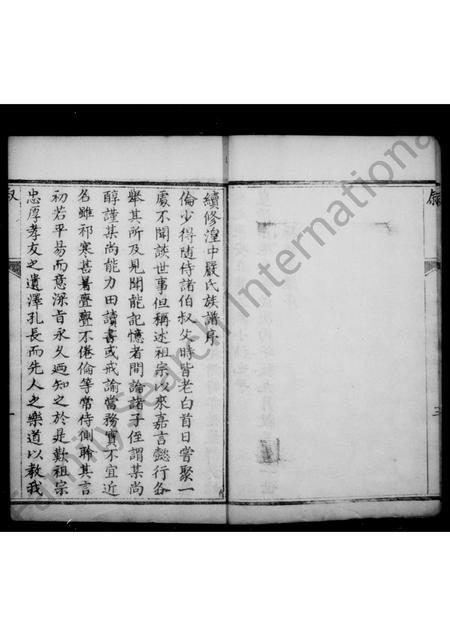 續修湟中嚴氏族譜序
倫少得随侍諸伯叔父時皆老白首日嘗聚一
處不聞談世事但稱述祖宗以來嘉言懿行各
舉其所及見聞能記憶者間論諸子侄謂某尚
醇謹某尚能力田讀書或戒諭當務實不宜近
名雖祁寒甚暑亹亹不倦倫等常侍側聆其言
初若平易而意深旨永久迺知之於是歎祖宗
忠厚孝友之遺澤孔長而先人之樂道以教我
叙
一
FamilySearch International